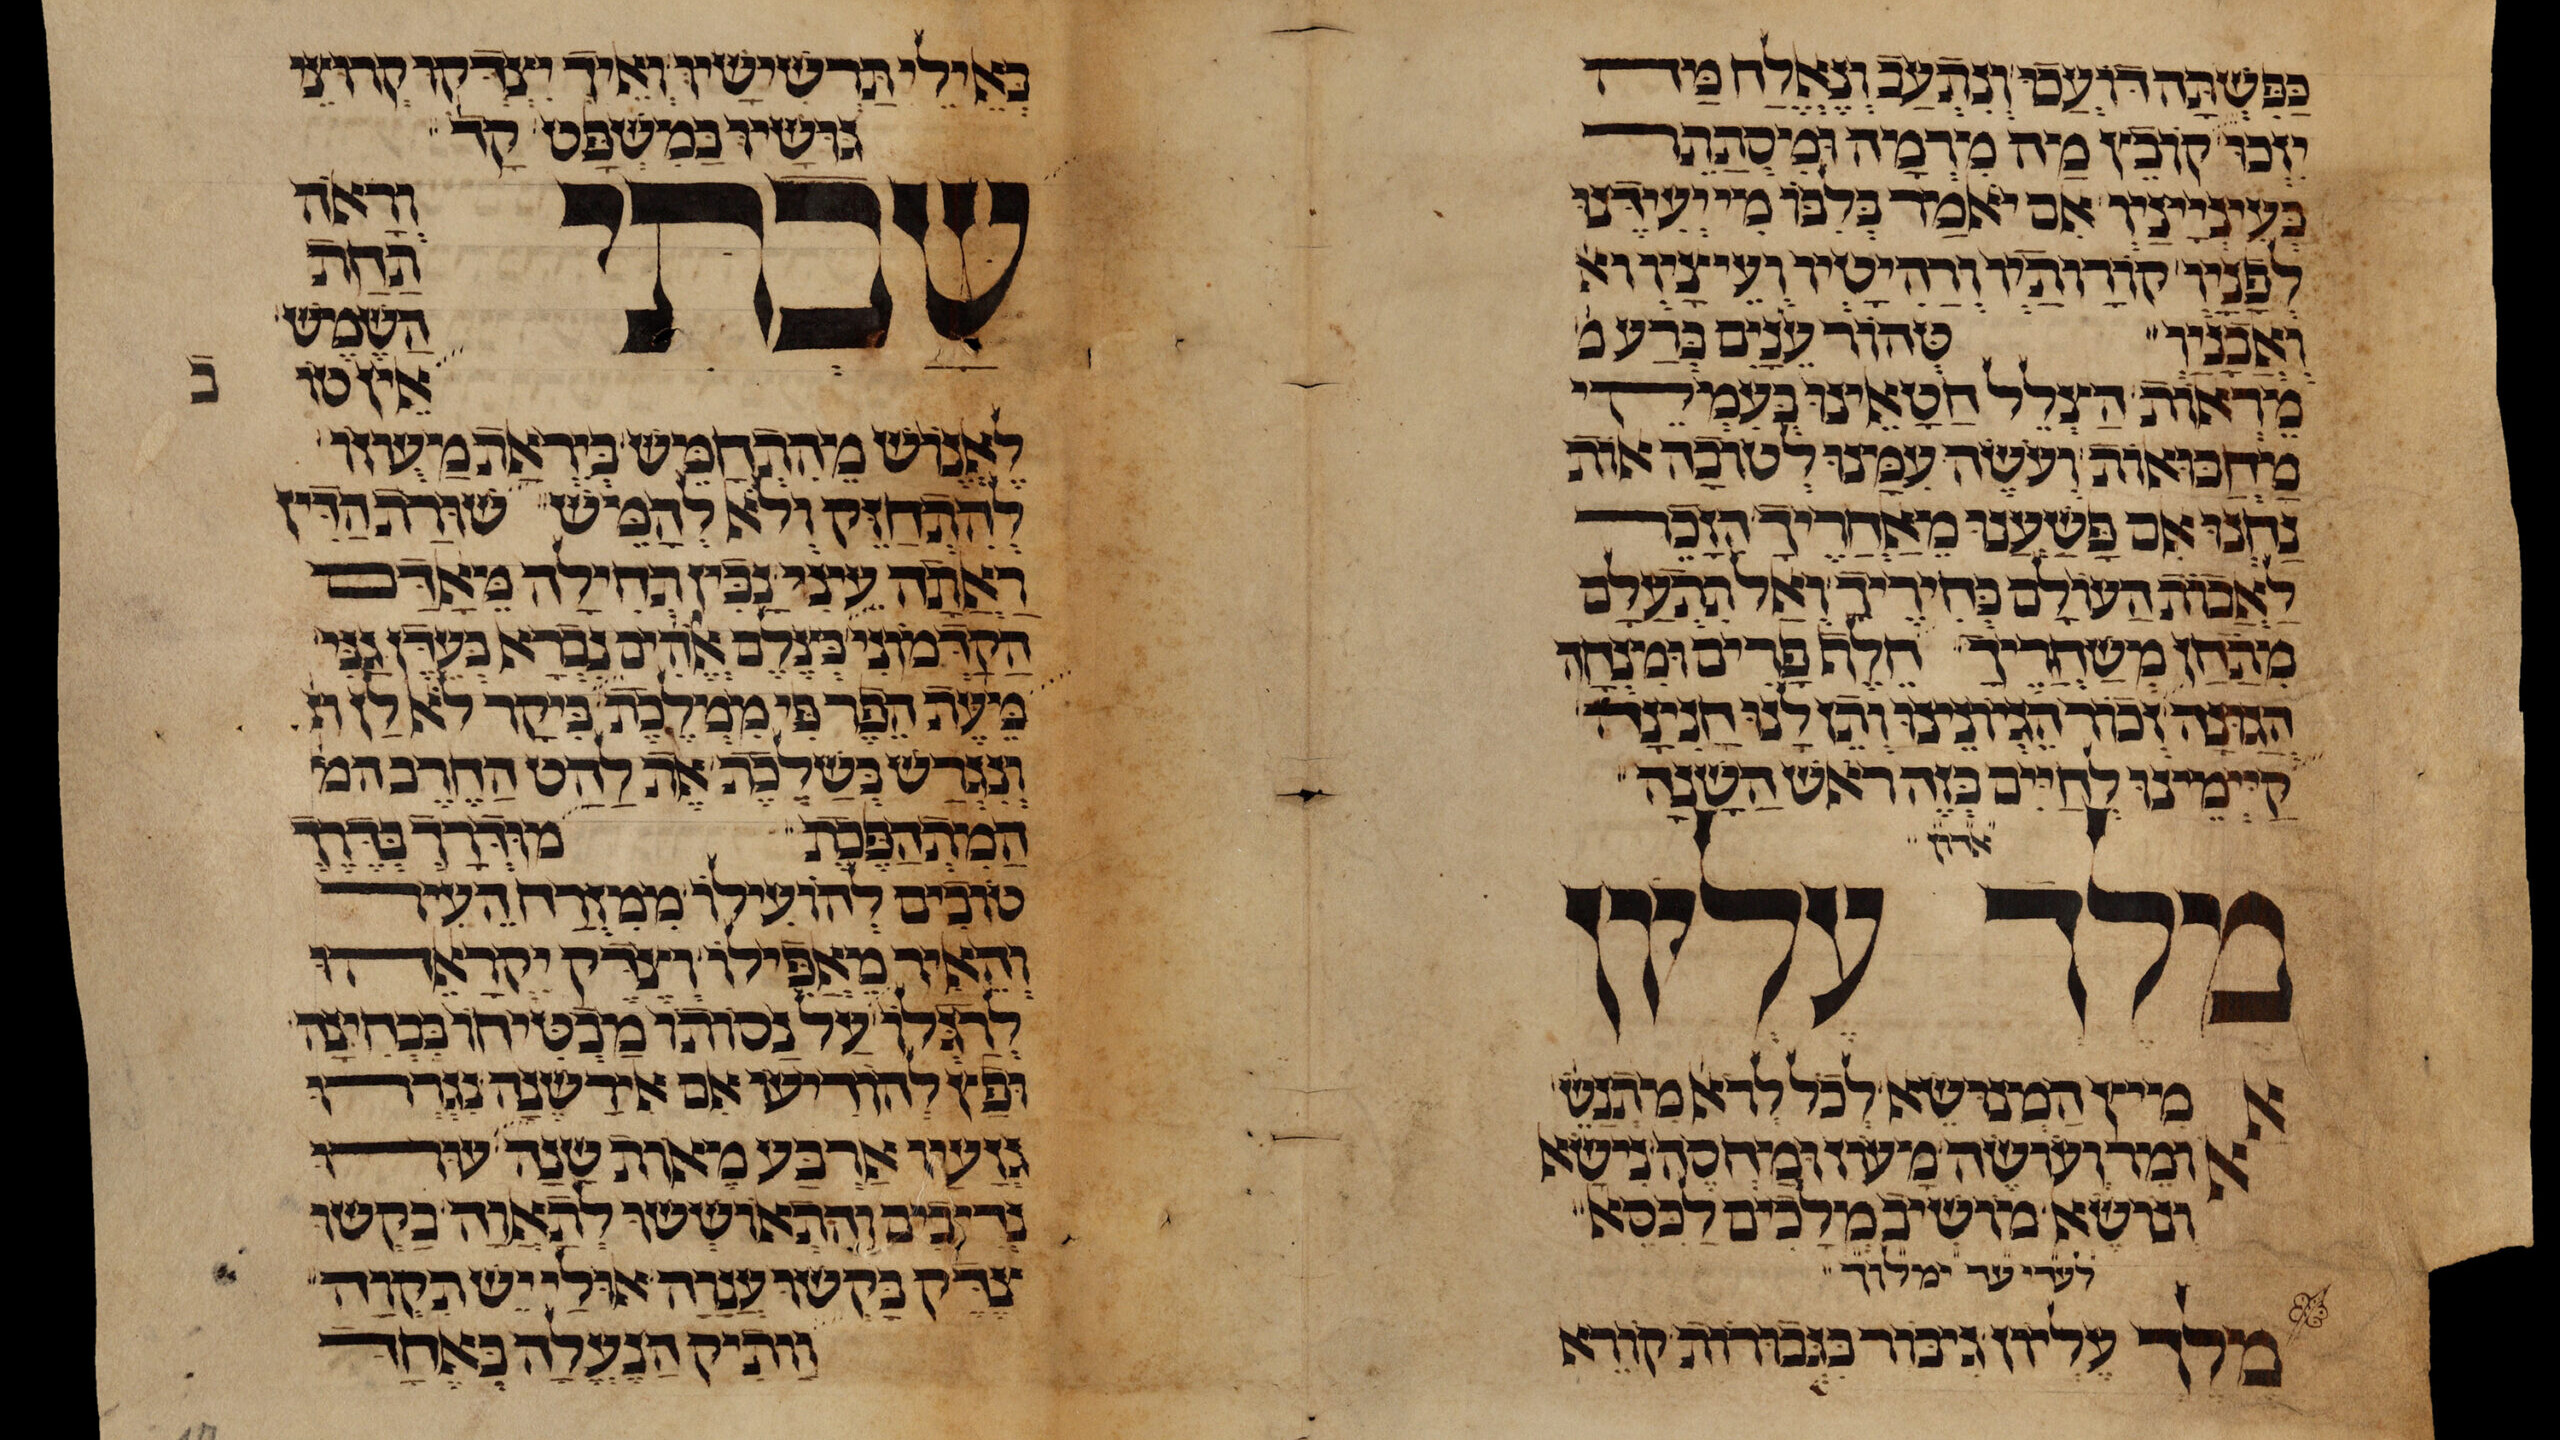 כַּפִּשְׁתָּה דוֹעֲכוּ וְנִתְעַב וְנֶאֱלַח מַה
יִזְכּוּ קוֹבֵץ מַה מִרְמָה וּמִסְתַּתֵר
אִם יֹאמַר בְּלִבּוֹ מִי יְעִידֶנּוּ
לְפָנָיו קוֹרוֹתָיו וְרַהִיטָיו וְעֵיצָיו וא
וַאֲבָנָיו טְהוֹר עֵנַיִם כְּרַע מ
מֵרְאוֹת הַיצְלֵל חֲטָאֵינוּ בְּעִמְקֵי
מַחֲבוּאוֹת וַעֲשֵׂה עִמָּנוּ לְטוֹבָה אוֹת
נַחְנוּ אִם פָּשַׁעֲנוּ מֵאַחֲרֶיךָ הִזָּכֵר
לַאֲבוֹת הָעוֹלָם בְּחִירֶיךָ וְאַל תִּתְעַלָּם
מִתְּחַן מְשַׁחֲרֶיךָ חֵלֶף פָּרִים וּמִנְחָה
קַיְּימֵינוּ לְחַיִּים בְּזֶה רֹאשׁ הַשָּׁנָה
מֶלֶךְ עֶלְיוֹן
אַמִּיץ הַמְנוּשָּׂא לְכָל לְרֹא מִתְנַשֵּׂ
אוֹמֵר וְעוֹשֶׂה מָעוֹז וּמַחְסֶה נִישָּׂא
וְנוֹשֵׂא מוֹשִׁיב מְלָכִים לַכִּסֵּא
לעדי עד ימלוך
מֶלֶךְ עֶלְיוֹן גִּיבּוֹר בִּגְבוּרוֹת קוֹרֵא
כְּאֵילֵי תַרְשִׁישָׁיו וְאֵיךְ יִצְדְּקוּ קְרוּצֵי
גוּשָׁיו בַּמִשְׁפָּט קָד
שַׁבְתִּי וְרָאֹה
תַחַת
הַשֶּׁמֶשׁ
אֵין טוֹ
ב
לֶאֱנוֹשׁ מֵהִתְחַמֵּשׁ בְּיִרְאַת מָעֻזּוֹ
לְהִתְחַזֵּק וְלֹא לְהָמֵישׁ שׁוּרַת הַדִּין
רָאֲתָה עֵינִי נָבִין תְּחִילָה מֵאָדָם
הַקַּדְמוֹנִי בְּצֶלֶם אֱלֹהִים נִבְרָא בְּעֵדֶן גַּנִּי
מֵעֵת הֵפֵר פִּי מִמְלֶכֶת בִּיקָר לֹא לָן ת
וְנִגְרַשׁ בְּשַׁלֶּכֶת אֶת לַהַט הַחֶרֶב המ
הַמִתְהַפֶּכֶת מוּדְרָךְ בְּדֶרֶךְ
טוֹבִים לְהוֹעִילוֹ מִמִּזְרַח הֵעִיר
וְהֵאִיר מֵאֲפֵילוֹ וְצֶדֶק יִקְרָאֵהוּ
לְרַגְלוֹ עַל נַסּוֹתוֹ מִבְטִיחוֹ
וּפָץ לְהוֹדִיעוֹ אִם אֵידַע שָׁנָה
אַרְבַּע מֵאוֹת שָׁנָה עוּרוּ
נְדִיבִים וְהִתְאוֹשְׁשׁוּ לְתַאֲוָה בַּקְשׁוּ
צֶדֶק בַּקְּשׁוּ עֲנָוָה אוּלַי יֵשׁ תִקְוָה
וָתִיק הַנַּעֲלָה בְּאֶחָד